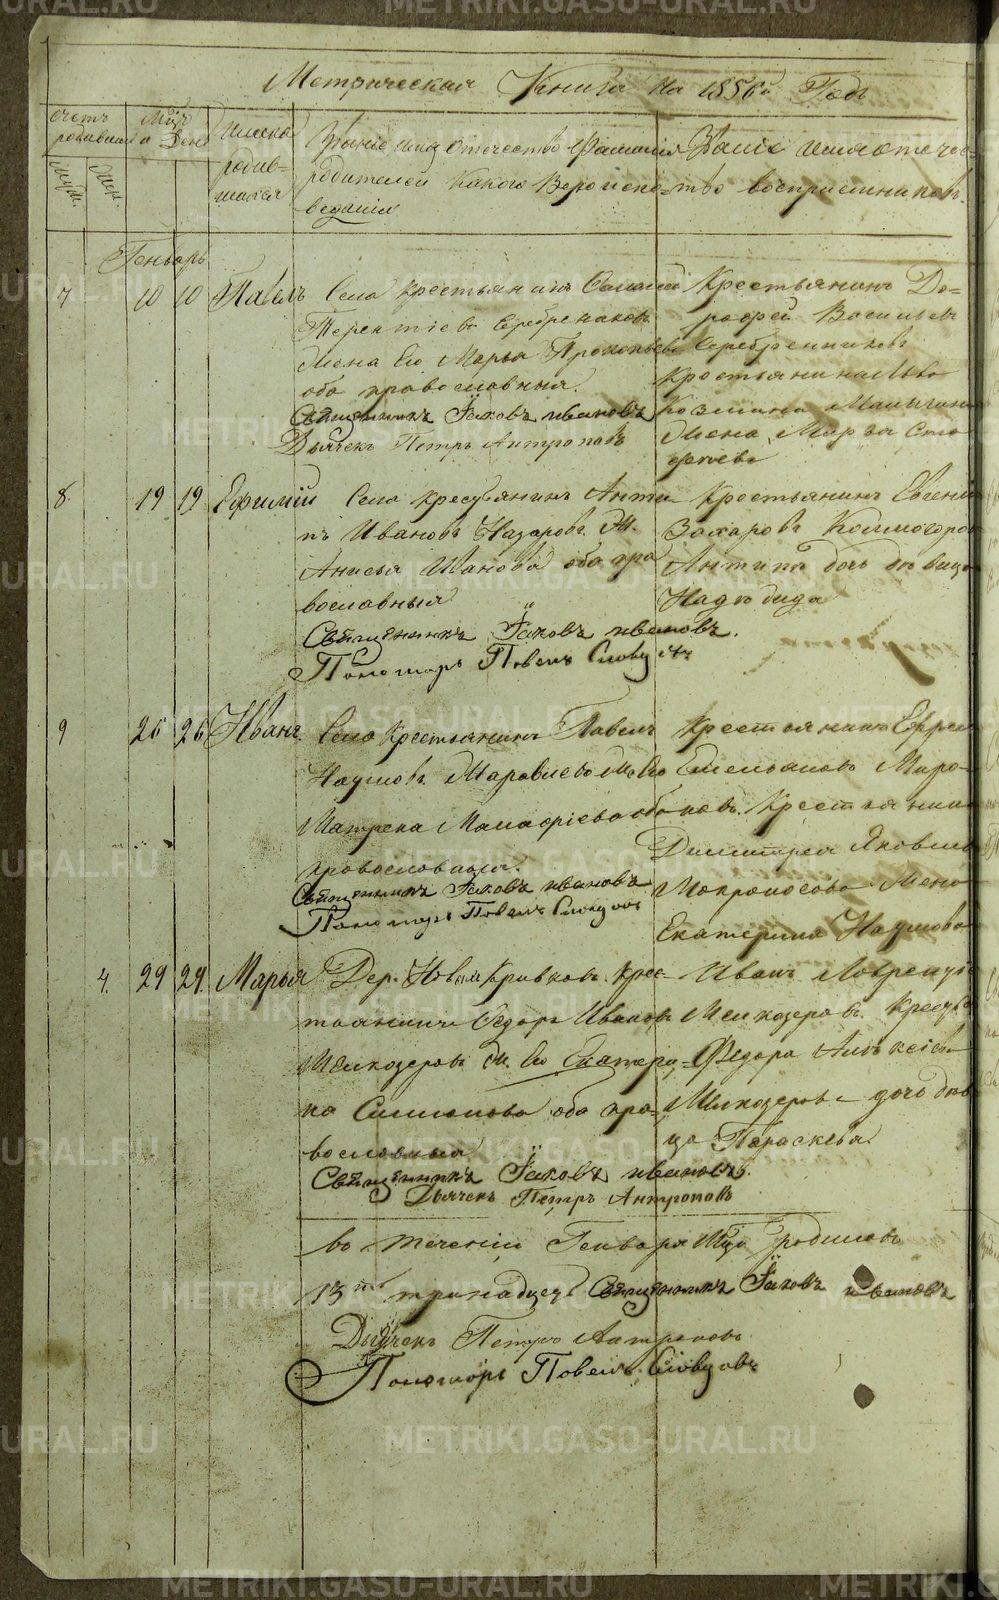 METRIKI.GASO-URAL.RU
Метрическая Книга на 1856й Годъ
Счетъ родившихся
Мцъ и День
Имена родившихся
Званіе имя отечество Фамилія
родителей какого Вероиспо-
веданія
Званіе имя отечес-
тво воспріемниковъ.
муж.
жен.
Генварь
7 10 10 Павелъ Села Крестьянинъ
Терентіевъ Серебрениковъ
жена Его Марья Прокопьева
оба православныя.
Священникъ Іаковъ ивановъ
Дьячекъ Петръ Антроповъ
Крестьянинъ До-
рофей Васильевъ
Серебренниковъ
Крестьянина
Козмина
жена Марѳа
8. 19 19 Ефимій Села Крестьянинъ Анти-
пъ Ивановъ Назаровъ ж.
Анисья Иванова оба пра
вославныя
Священникъ Іаковъ ивановъ.
Пономарь Павелъ Словцовъ
Крестьянинъ Евгеній
Захаровъ
Антипа дочь девица
Надежда
9 26 26 Иванъ. Села Крестьянинъ Павелъ
Наумовъ ж. Его
Матрена оба
православныя.
Священникъ Іаковъ ивановъ
Пономарь Павелъ Словцовъ
Крестьянинъ Ефрем
Емельяновъ Миро-
новъ. Крестьянина
Димитрея Яковлева
Мокроносова жена
Екатерина Наумова
4. 29 29. Марья Дер. Новая Кривкова Крес-
тьянинъ Ѳедоръ Ивановъ
Шелкозеровъ ж. Его Екатери-
на Симионова оба пра-
вославныя
Священникъ Іаковъ ивановъ.
Дьячекъ Петръ Антроповъ
Иванъ Лаврентіе
Шелкозеровъ. Крестья
Ѳедора Алексіева
Шелкозерова дочь деви
ца Параскева
Во теченіи Генваря Мца родилось
13ть тринадцеть Священникъ Іаковъ ивановъ
Дьячекъ Петръ Антроповъ
Пономарь Павелъ Словцовъ